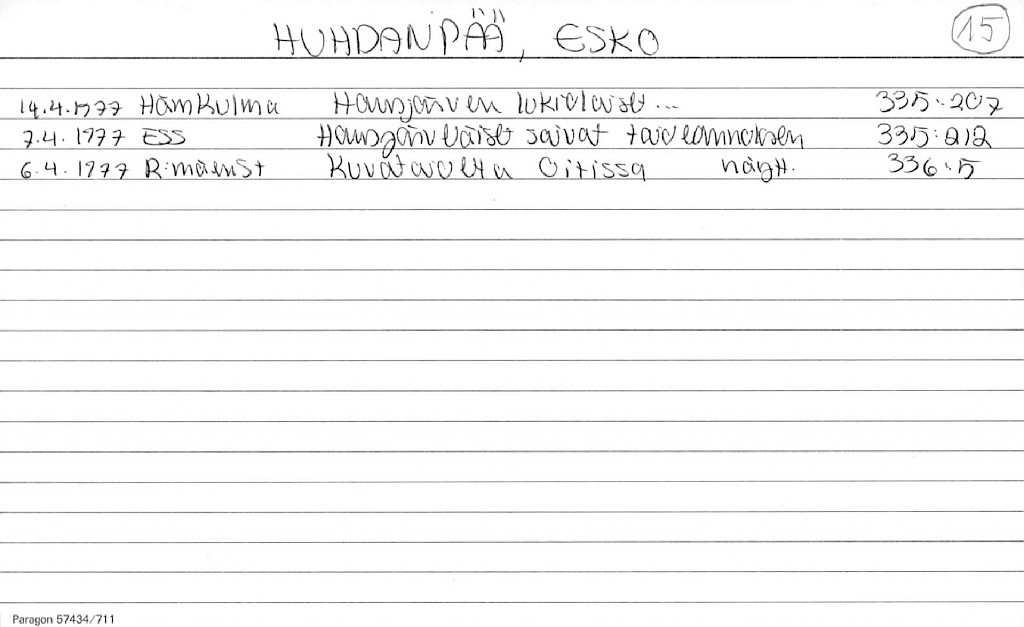 HUHDANPÄÄ, ESKO 15
14.4.1977 HämKulma Hausjärven lukiolaiset... 335:207
7.4.1977 ESS Hausjärveläiset saivat taideannoksen 335:212
6.4.1977 R:mäenSt Kuvataidetta Oitissa näytt. 336:5
Paragon 57434/711